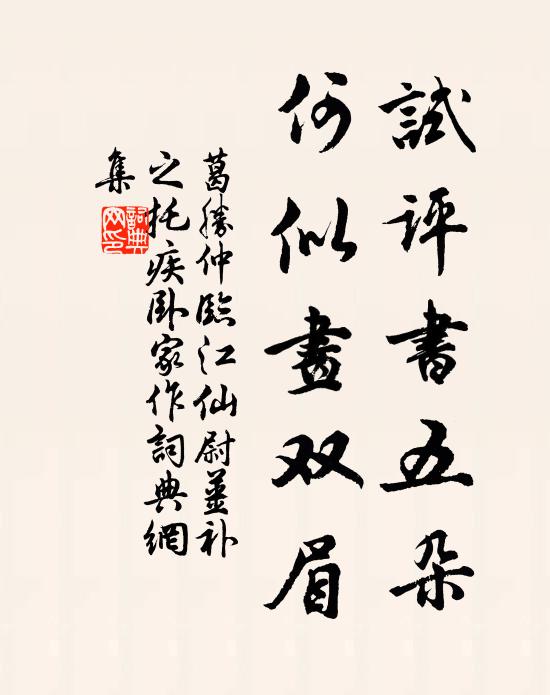 試評書五朵
何似畫双眉
葛勝仲臨江仙尉姜补
之托疾卧家作詞典網
集
詞典網印